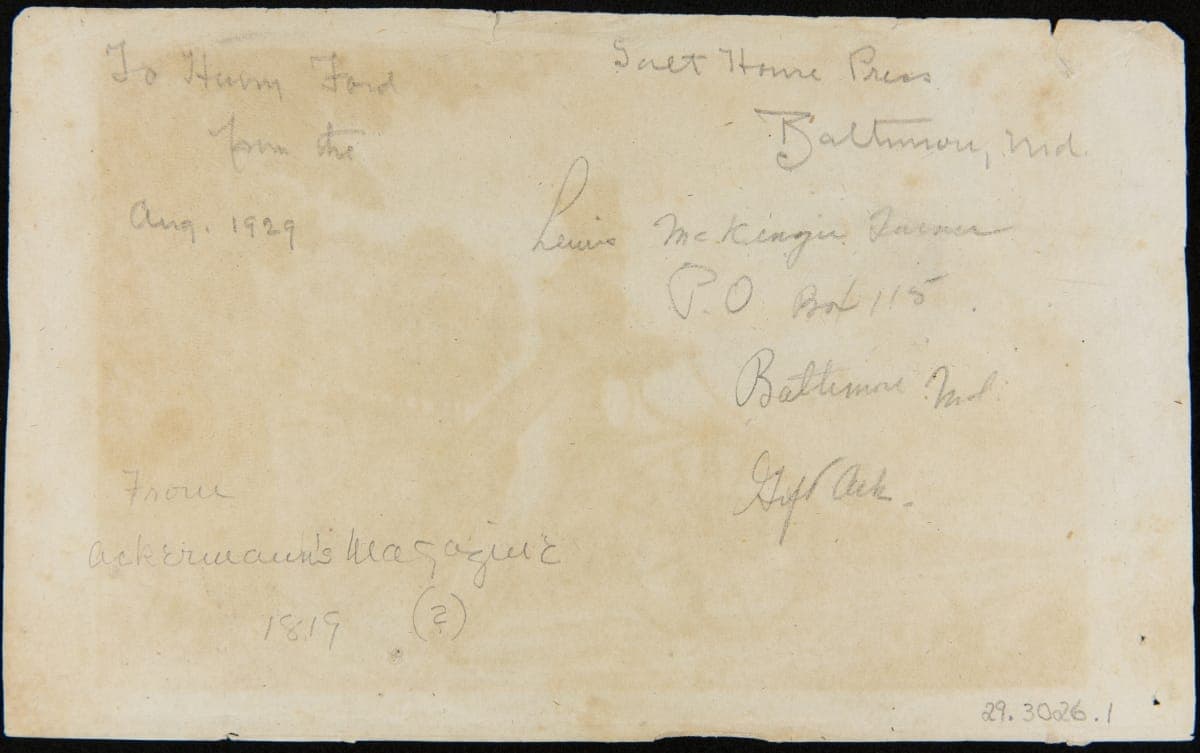 To Henry Ford
from the
Salt House Press
Baltimore, Md.
Aug. 1929
Lewis McKenzie Turner
P.O Box 115.
Baltimore Md.
Gift Ack.
From
Ackermann's Magazine
1819 (?)
29.3026.1